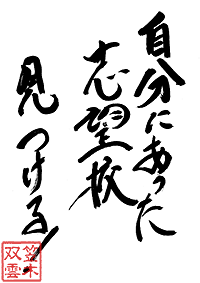 自分にあった
志望校
見つける!
笠木
双雲